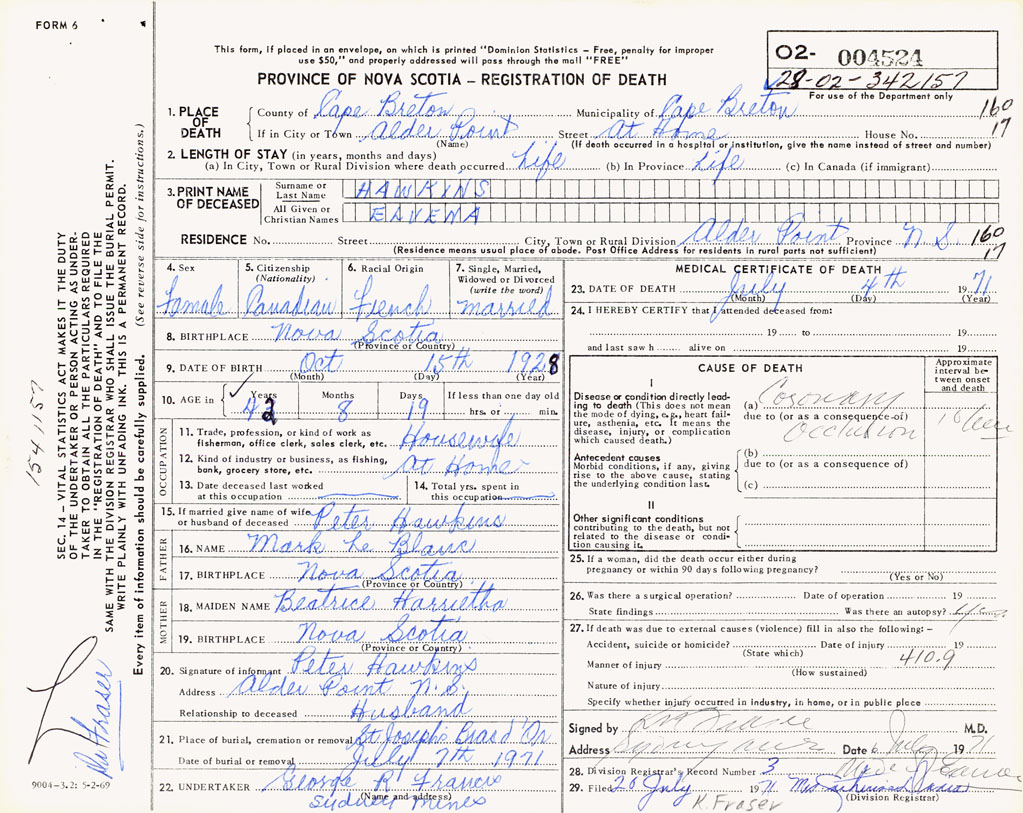 FORM 6
This form, if placed in an envelope, on which is printed "Dominion Statistics — Free, penalty for improper
use $50," and properly addressed will pass through the mail "FREE"
PROVINCE OF NOVA SCOTIA — REGISTRATION OF DEATH
02- 004524
28-02-342157
For use of the Department only
1. PLACE OF DEATH
County of Cape Breton Municipality of Cape Breton 160
If in City or Town Alder Point Street At Home House No. 17
(Name) (If death occurred in a hospital or institution, give the name instead of street and number)
2. LENGTH OF STAY (in years, months and days)
(a) In City, Town or Rural Division where death occurred Life (b) In Province Life (c) In Canada (if immigrant)
3. PRINT NAME OF DECEASED
Surname or Last Name HAWKINS
All Given or Christian Names
RESIDENCE No. Street City, Town or Rural Division Alder Point Province N S 160
(Residence means usual place of abode. Post Office Address for residents in rural parts not sufficient) 17
4. Sex Female
5. Citizenship (Nationality) Canadian
6. Racial Origin French
7. Single, Married, Widowed or Divorced (write the word) Married
8. BIRTHPLACE Nova Scotia
(Province or Country)
9. DATE OF BIRTH Oct 15th 1928
(Month) (Day) (Year)
10. AGE in Years Months Days If less than one day old
42 8 19 hrs. or min.
OCCUPATION
11. Trade, profession, or kind of work as
fisherman, office clerk, sales clerk, etc. Housewife
12. Kind of industry or business, as fishing,
bank, grocery store, etc. At Home
13. Date deceased last worked
at this occupation
14. Total yrs. spent in
this occupation
15. If married give name of wife
or husband of deceased Peter Hawkins
FATHER
16. NAME Mark Le Blanc
17. BIRTHPLACE Nova Scotia
(Province or Country)
MOTHER
18. MAIDEN NAME Beatrice
19. BIRTHPLACE Nova Scotia
(Province or Country)
20. Signature of informant Peter Hawkins
Address Alder Point N.S.
Relationship to deceased Husband
21. Place of burial, cremation or removal St Joseph's Bras d'Or
Date of burial or removal July 7th 1971
22. UNDERTAKER George R Francis
(Name and address)
Sydney Mines
MEDICAL CERTIFICATE OF DEATH
23. DATE OF DEATH July 4th 1971
(Month) (Day) (Year)
24. I HEREBY CERTIFY that I attended deceased from:
19 to 19
and last saw h alive on 19
CAUSE OF DEATH
Approximate interval between onset and death
I
Disease or condition directly leading
to death (This does not mean
the mode of dying, e.g., heart failure,
asthenia, etc. It means the
disease, injury, or complication
which caused death.)
(a) Coronary
due to (or as a consequence of)
Occlusion
Antecedent causes
Morbid conditions, if any, giving
rise to the above cause, stating
the underlying condition last.
(b)
due to (or as a consequence of)
(c)
II
Other significant conditions
contributing to the death, but not
related to the disease or condition
causing it.
25. If a woman, did the death occur either during
pregnancy or within 90 days following pregnancy?
(Yes or No)
26. Was there a surgical operation? Date of operation 19
State findings Was there an autopsy?
27. If death was due to external causes (violence) fill in also the following: —
Accident, suicide or homicide? Date of injury 19
(State which) 410.9
Manner of injury
(How sustained)
Nature of injury
Specify whether injury occurred in industry, in home, or in public place
Signed by M.D.
Address Date 6 July 1971
28. Division Registrar's Record Number 3
29. Filed 20 July 1971
(Division Registrar)
K. Fraser
SEC. 14 — VITAL STATISTICS ACT MAKES IT THE DUTY
OF THE UNDERTAKER OR PERSON ACTING AS UNDERTAKER
TO OBTAIN ALL THE PARTICULARS REQUIRED
IN THE "REGISTRATION OF DEATH" AND FILE THE
SAME WITH THE DIVISION REGISTRAR WHO SHALL ISSUE THE BURIAL PERMIT.
WRITE PLAINLY WITH UNFADING INK. THIS IS A PERMANENT RECORD.
Every item of information should be carefully supplied. (See reverse side for instructions.)
1541157
Dr Fraser
9004-3.2: 5-2-69